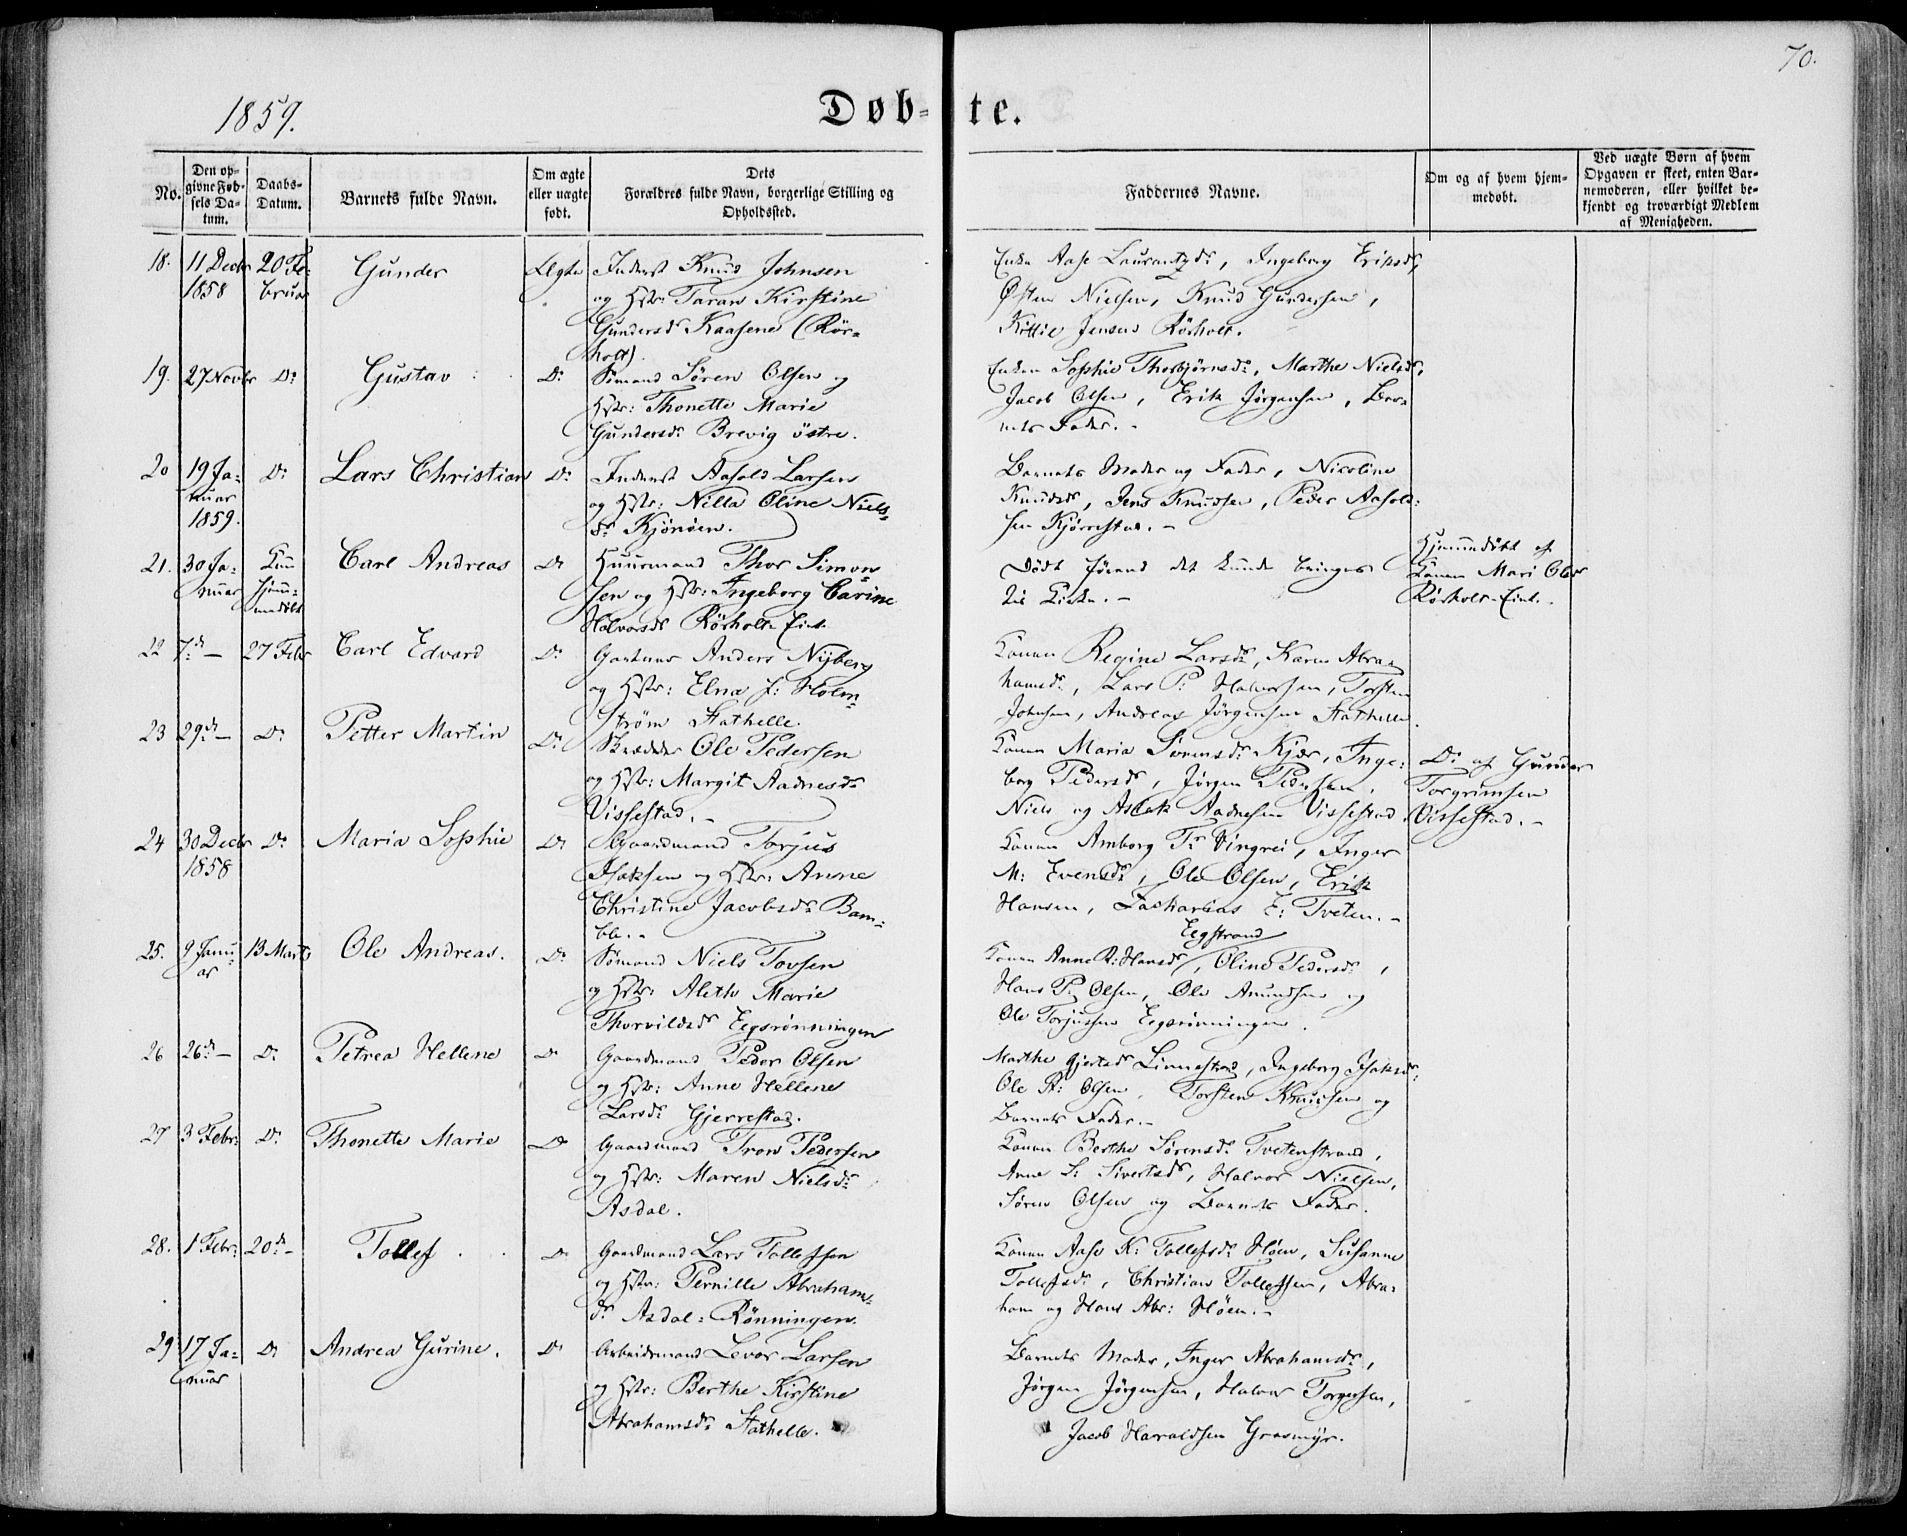 70.
1859.
Døb-te.
No.
Den op-
givne Fød-
sels Da-
tum.
Daabs-
Datum.
Barnets fulde Navn.
Om ægte
eller uægte
født.
Dets
Forældres fulde Navn, borgerlige Stilling og
Opholdssted.
Faddernes Navne.
Om og af hvem hjem-
medøbt.
Ved uægte Børn af hvem
Opgaven er skeet, enten Bar-
nemoderen, eller hvilket be-
kjendt og troværdigt Medlem
af Menigheden.
18. 11 Decbr 1858 20 Fe-
bruar
Gunder
Ægte
Inderst Knud Johnsen
og Hstr: Taran Kirstine
Gundersdr Kaasene (Rør-
holt).
Enke Aase Laurantzdr, Ingeborg Eriksdr,
Østen Nielsen, Knud Gundersen,
Kittil Jensen Rørholt.
19. 27 Novbr Do
Gustav
Do
Sømand Søren Olsen og
Hstr: Thonette Marie
Gundersdr Brevig østre.
Enken Sophie Thorbjørnsdr, Marthe Nielsdr,
Jacob Olsen, Erik Jørgensen, Bar-
nets Fader.
20 19 Ja-
nuar
1859.
Do
Lars Christian
Do
Inderst Aasold Larsen
og Hstr: Nilla Oline Niels-
dr Kjønøen.
Barnets Moder og Fader, Nicoline
Knudsdr, Jens Knudsen, Peder Aasold-
sen Kjørrestad.
21. 30 Ja-
nuar
Kun
hjem-
medøbt
Carl Andreas
Do
Huusmand Thor Simon-
sen og Hstr: Ingeborg Carine
Halvorsdr Rørholt Eie.
Dødt førend det kunde bringes
til Kirke.
Hjemmedøbt af
Konen Mari Olsdr
Rørholt-Eie.
22 7de 27 Febr
Carl Edvard
Do
Gartner Anders Nyberg
og Hstr: Elna J: Holm-
strøm Stathelle.
Konen Regine Larsdr, Karen Abra-
hamsdr, Lars P: Halvorsen, Torsten
Johnsen, Andreas Jørgensen Stathelle.
23 29de Do
Petter Martin
Do
Skrædder Ole Pedersen
og Hstr: Margit Aadnesdr
Vissestad.
Konen Maria Sørensdr Kjær, Inge-
borg Pedersdr, Jørgen Pedersen,
Niels og Aslak Aadnesen Vissestad
Do af Gunder
Torgrimsen
Vissestad.
24 30 Decbr
1858
Do
Maria Sophie
Do
Gaardmand Torjus
Isaksen og Hstr: Anne
Christine Jacobsdr Bam-
ble.
Konen Amborg Tr Vingrei, Inger
M: Evensdr, Ole Olsen, Erik
Hansen, Zacharias E: Tveten.
25. 9 Janu-
ar
13 Marts
Ole Andreas.
Do
Sømand Niels Tovsen
og Hstr: Aleth Marie
Thorvildsdr Eegsrønningen
Eegstrand
Konen Anne R: Hansdr, Oline Pedersdr,
Hans P. Olsen, Ole Amundsen og
Ole Torjussen Eegsrønningen.
26 26de Do
Petrea Hellene
Do
Gaardmand Peder Olsen
og Hstr: Anne Hellene
Larsdr Gjerrestad.
Marthe Gjertsdr Linnestad, Ingeborg Isaksdr
Ole R: Olsen, Torsten Knudsen og
Barnets Fader.
27 3 Febr: Do
Thonette Marie
Do
Gaardmand Tron Pedersen
og Hstr: Maren Nielsdr
Asdal.
Konen Berthe Sørensdr Tvetenstrand,
Anne S: Sivertsdr, Halvor Nielsen,
Søren Olsen og Barnets Fader.
28. 1 Febr: 20de
Tollef
Do
Gaardmand Lars Tollefsen
og Hstr: Pernille Abrahams-
dr Asdal-Rønningen
Konen Aase K: Tollefsdr Høen, Susanne
Tollefsdr, Christian Tollefsen, Abra-
ham og Hans Abr: Høen.
29 17 Ja-
nuar
Do
Andrea Gurine.
Do
Arbeidsmand Levor Larsen
og Hstr: Berthe Kirstine
Abrahamsdr Stathelle.
Barnets Moder, Inger Abrahamsdr,
Jørgen Jørgensen, Halvor Torgersen,
Jacob Haraldsen Grasmyr.